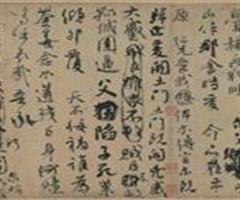 山作郡余時受命亦在平
原仁兄愛我俾爾傳言爾既
歸止爰開土門土門既開凶威
大蹙賊臣不救
孤城圍逼父陷子死巢
傾卵覆天不悔禍誰為
荼毒念爾遘殘百身何贖
嗚呼哀哉吾承